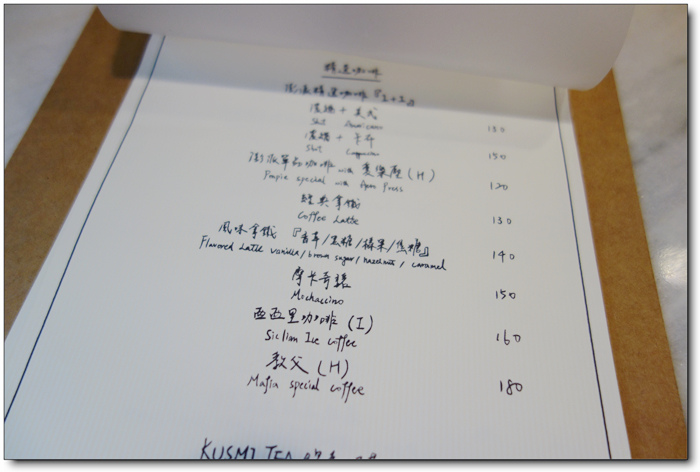 精選咖啡
澎派精選咖啡『1+1』
濃縮 + 美式
Shot Americano 130
濃縮 + 卡布
Shot Cappuccino 150
澎派單品咖啡 with 愛樂壓 (H)
Pompie special with Aero Press 120
經典拿鐵
Coffee Latte 130
風味拿鐵『香草/黑糖/榛果/焦糖』
Flavored Latte vanilla/brown sugar/hazelnuts/caramel 140
摩卡奇諾
Mochaccino 150
西西里咖啡 (I)
Sicilian Ice coffee 160
教父 (H)
Mafia special coffee 180
KUSMI TEA